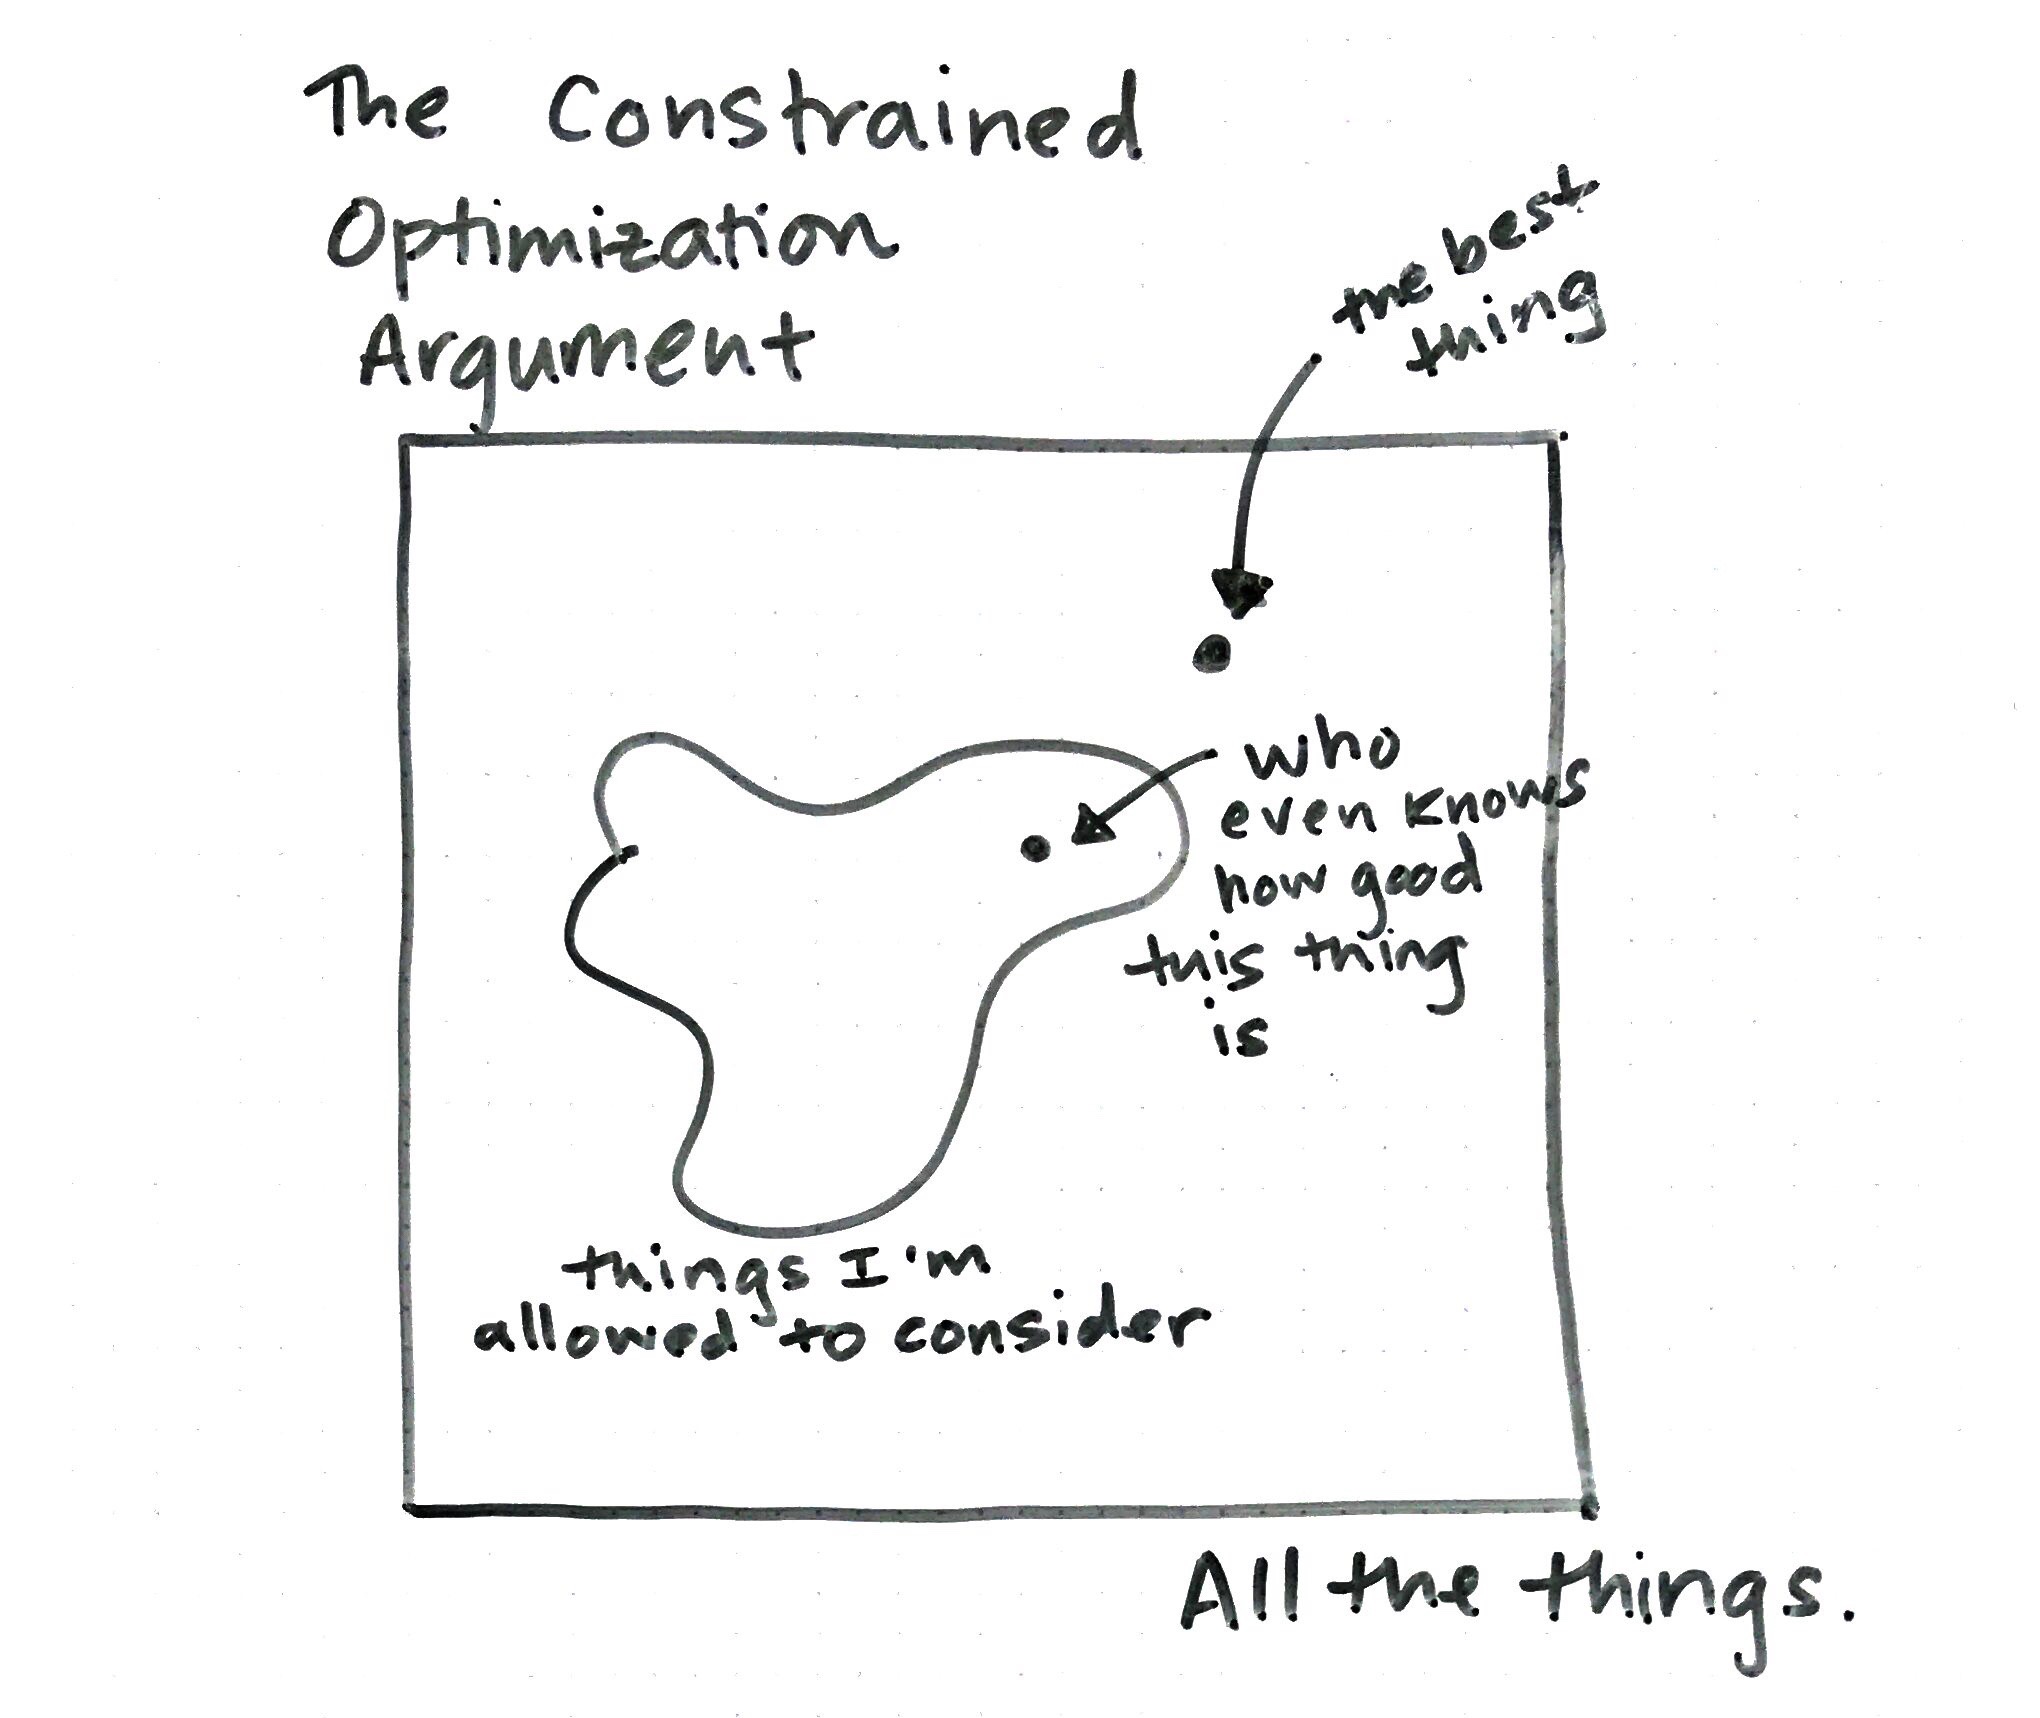 The Constrained
Optimization
Argument
the best
thing
who
even knows
how good
this thing
is
things I'm
allowed to consider
All the things.